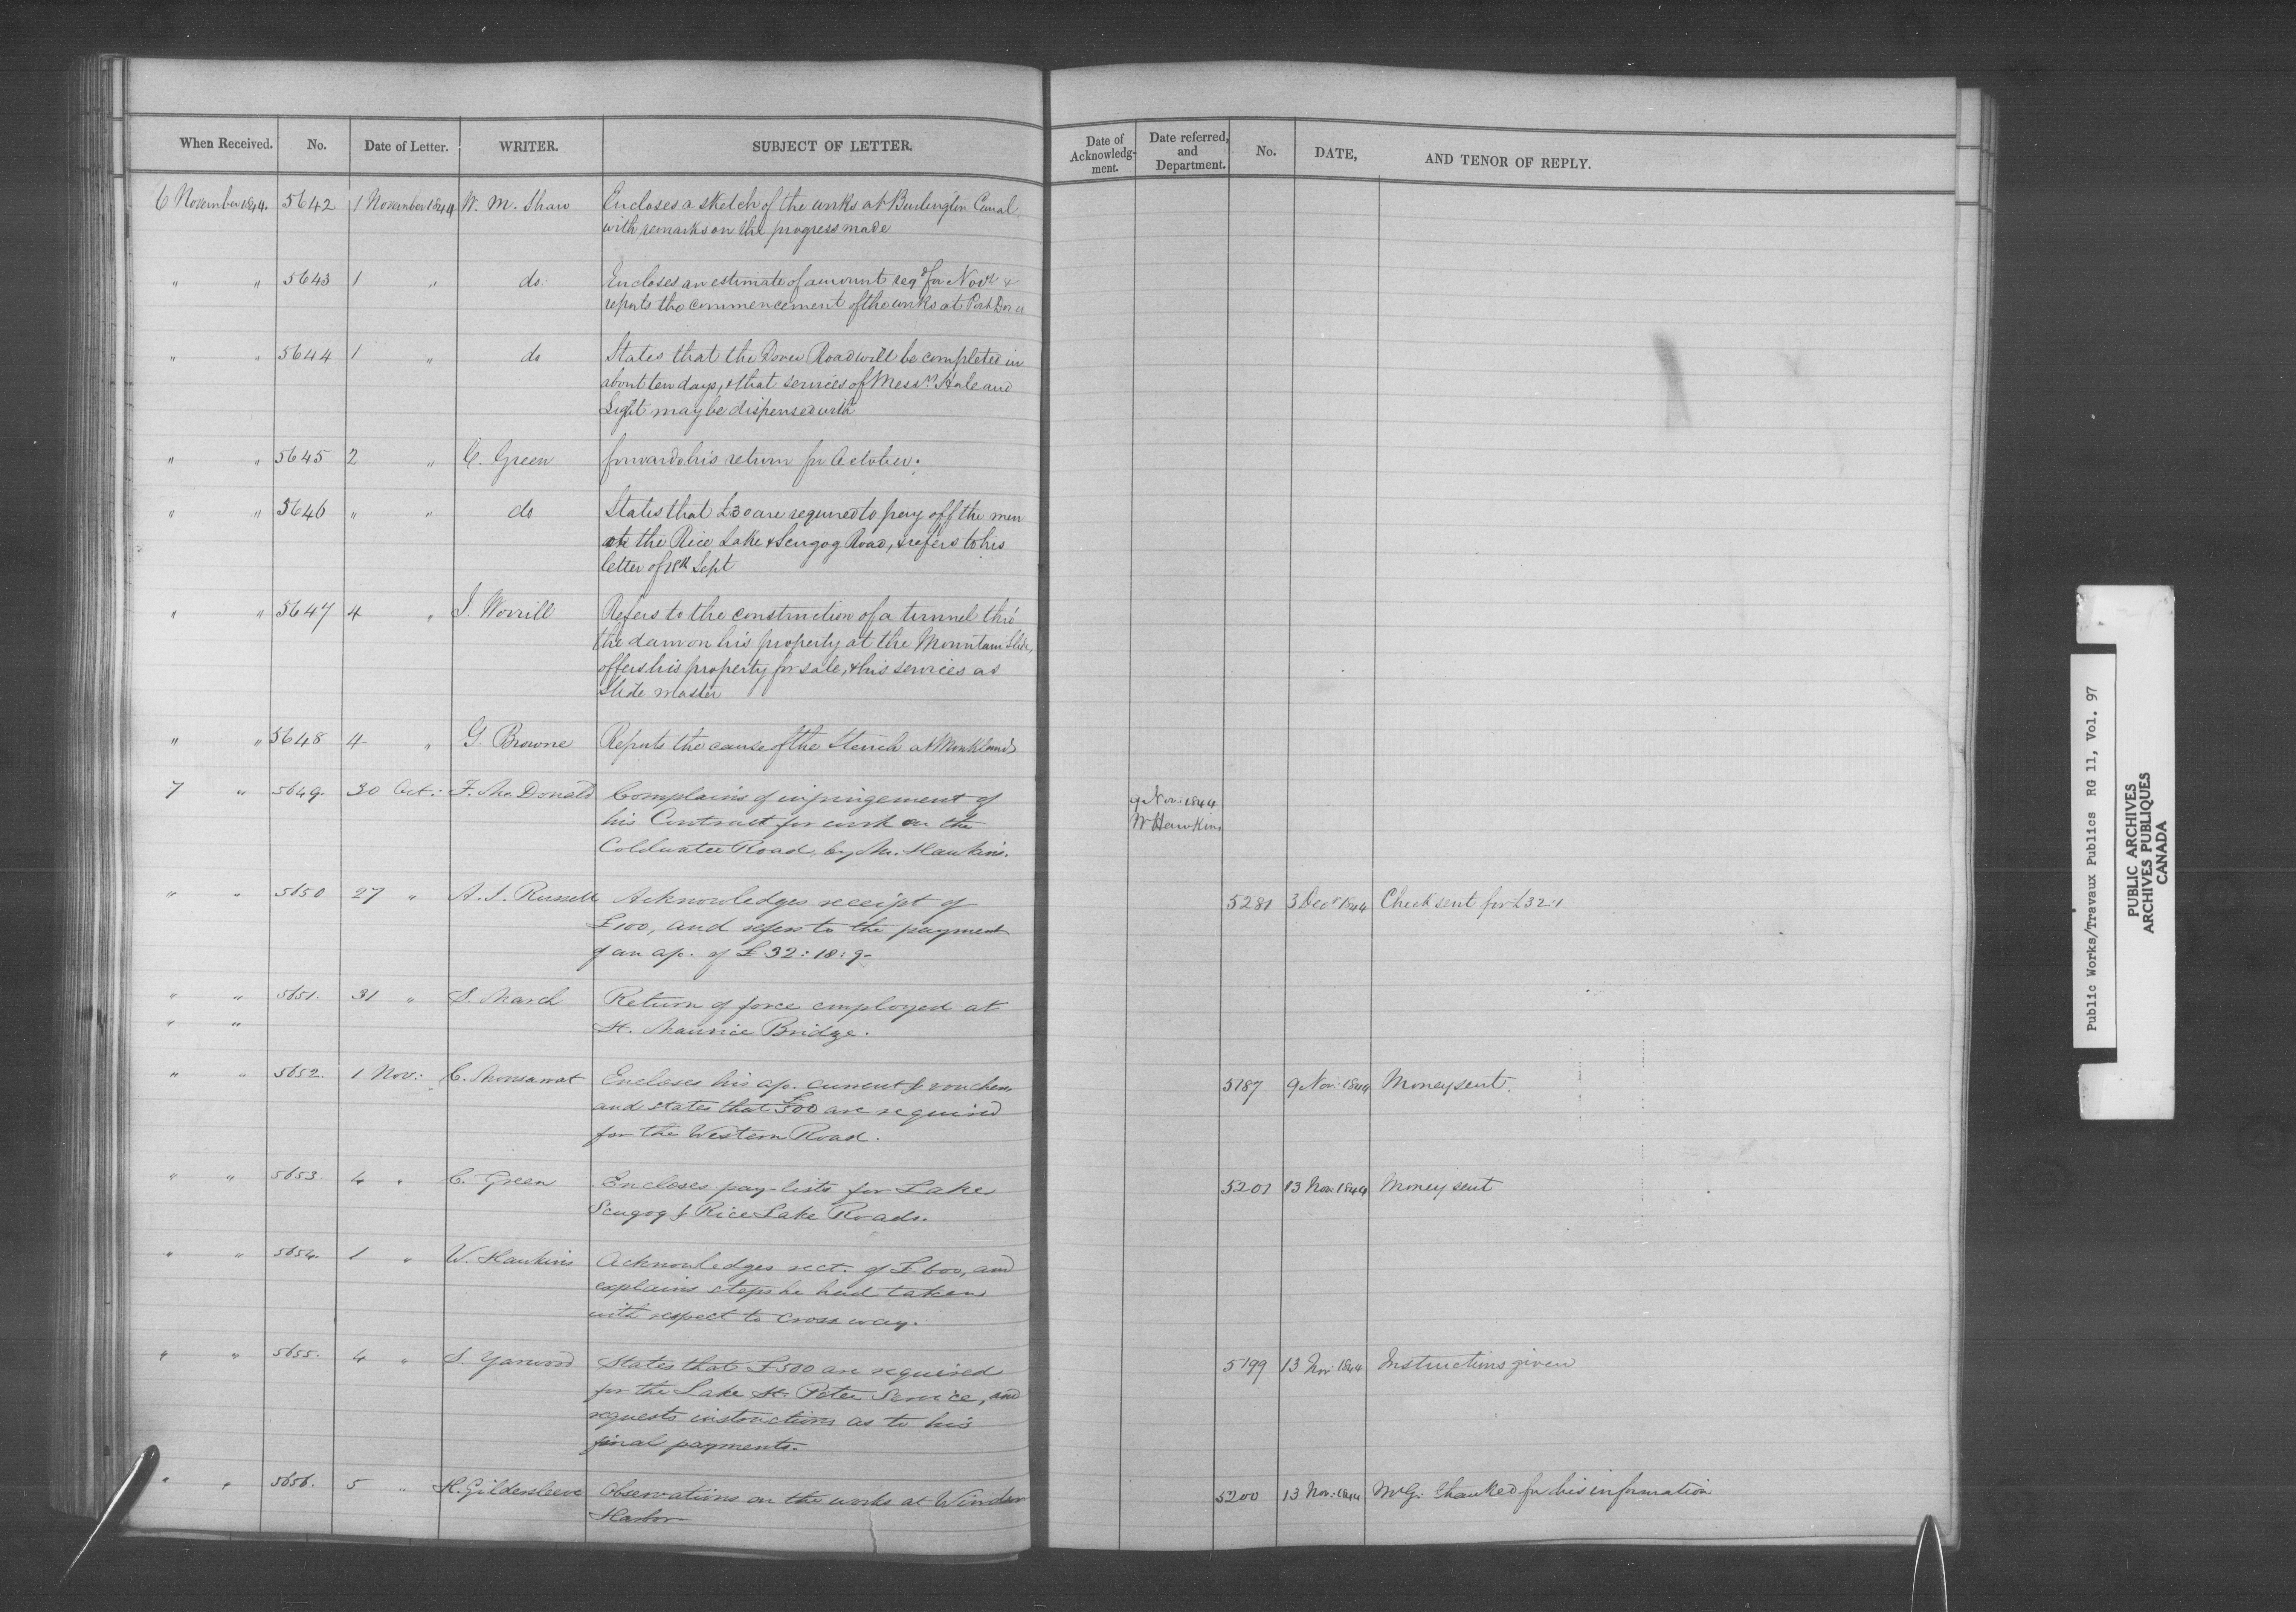 When Received. No. Date of Letter. WRITER. SUBJECT OF LETTER.
Date of Acknowledg-ment. Date referred, and Department. No. DATE, AND TENOR OF REPLY.
6 November 1844. 5642 1 November 1844 W. M. Shaw Encloses a sketch of the works at Burlington Canal,
with remarks on the progress made
" " 5643 1 " do. Encloses an estimate of amount reqd for Novr &
reports the commencement of the works at Port Dover
" " 5644 1 " do States that the Dover Road will be completed in
about ten days, & that services of Messrs. and
Light may be dispensed with
" " 5645 2 " C. Green forwards his return for October.
" " 5646 " " do States that £30 are required to pay off the men
on the Rice Lake & Scugog Road, & refers to his
letter of 18th Sept
" " 5647 4 " J. Worrill Refers to the construction of a tunnel thro'
the dam on his property at the Mountain Slide,
offers his property for sale, & his services as
Slide master
" " 5648 4 " G. Browne Reports the cause of the Stench at Monklands
7 " 5649. 30 Oct: F. McDonald Complains of infringement of 9 Nov: 1844
his Contract for work on the W Hawkins
Coldwater Road, by Mr. Hawkins.
" " 5650 27 " A. J. Russell Acknowledges receipt of 5281 3 Decr 1844 Check sent for £32.1
£100, and refers to the payment
of an ap. of £32:18:9-
" " 5651. 31 " S. March Return of force employed at
" " St. Maurice Bridge.
" " 5652. 1 Nov: C. Monsarrat Encloses his ap. current & vouchers 5187 9 Nov: 1844 Money sent.
and states that £500 are required
for the Western Road.
" " 5653. 4 " C. Green Encloses pay-lists for Lake 5201 13 Nov: 1844 Money sent
Scugog & Rice Lake Roads.
" " 5654. 1 " W. Hawkins Acknowledges rect. of £600, and
explains steps he had taken
with respect to cross way.
" " 5655. 4 " S. Yarwood States that £500 are required 5199 13 Nov: 1844 Instructions given
for the Lake St. Peter Service, and
requests instructions as to his
final payments.
" " 5656. 5 " H. Gildersleeve Observations on the works at Windsor 5200 13 Nov: 1844 Mr G: thanked for his information
Harbor
Public Works/Travaux Publics RG 11, Vol. 97
PUBLIC ARCHIVES
ARCHIVES PUBLIQUES
CANADA